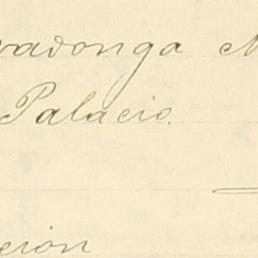 vadonga M
Palacio.
ción